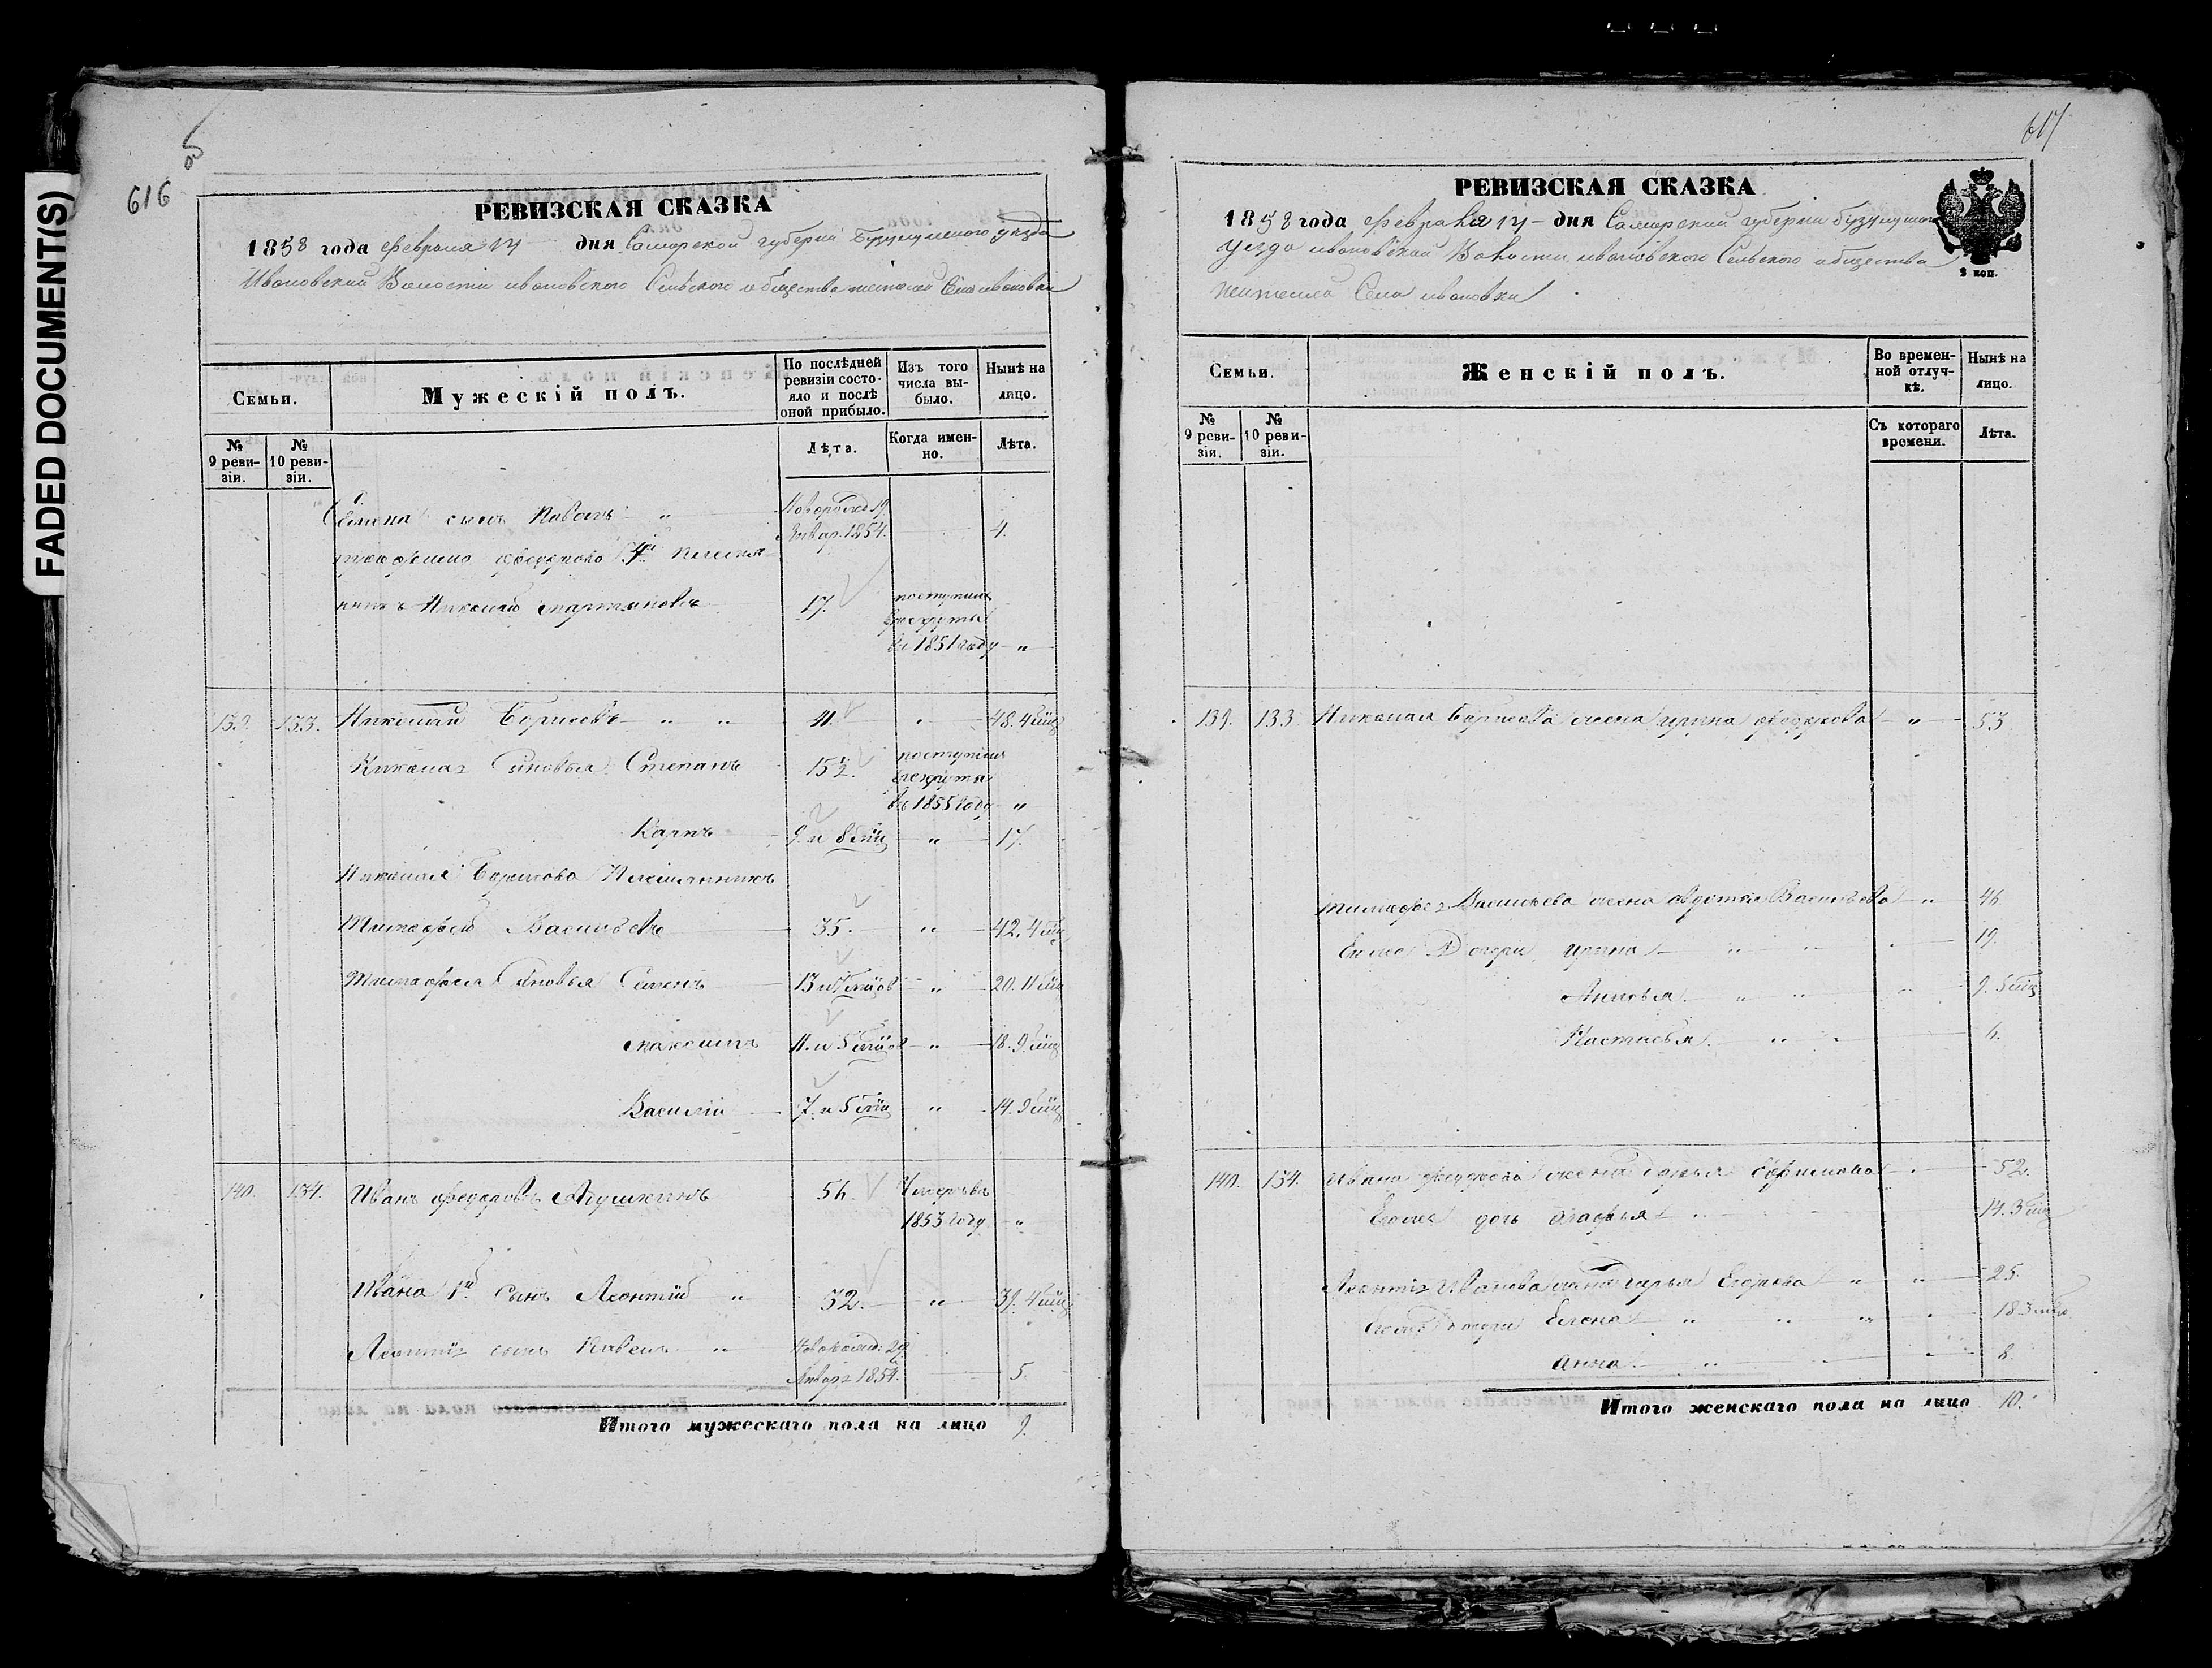 FADED DOCUMENT(S)
616
РЕВИЗСКАЯ СКАЗКА
1858 года февраля 14 дня Самарской губернии Бузулукского уезда
Ивановской Волости ивановского Сельского общества жителей Села ивановки
Семьи.
Мужескій полъ.
По послѣдней ревизіи состо-яло и послѣ оной прибыло.
Изъ того числа вы-было.
Нынѣ на лицо.
№ 9 реви-зіи.
№ 10 реви-зіи.
Лѣта.
Когда имен-но.
Лѣта.
Семена сынъ Павелъ " Новорожд 19 Январ. 1854. 4.
федорова племян
никъ Николай мартыновъ 17. поступилъ
врекруты
въ 1851 году "
139. 133. Николай Борисовъ " " 41. " 48. 4 мѣц
Николая Сыновья Степанъ 15 ½. поступилъ
врекруты
въ 1855 году "
Карпъ 9. и 8 мѣц " 17.
Николая Борисова Племянникъ
Тимофей Васильевъ 35. " 42. 4 мѣц
Тимофея Сыновья Семенъ 13 и мѣцов " 20. 11 мѣц
максимъ 11. и 5 мѣцов " 18. 9 мѣц
Василій 7. и 5 мѣц " 14. 9 мѣц
140. 134. Иванъ федоровъ 56. Умеръ въ
1853 году "
Ивана 1й сынъ Леонтій " 32. " 39. 4 мѣц
Леонтія сынъ Павелъ " 29
Январ 1854. 5.
Итого мужескаго пола на лицо 9.
617
РЕВИЗСКАЯ СКАЗКА
1858 года февраля 14 дня Самарской губернии бузулукского
уезда ивановской Волости ивановского Сельского общества
жителей Села ивановки
2 коп.
Семьи.
Женскій полъ.
Во времен-ной отлуч-кѣ.
Нынѣ на лицо.
№ 9 реви-зіи.
№ 10 реви-зіи.
Съ котораго времени.
Лѣта.
139. 133. Николая Борисова жена ирина федорова " 53
Тимофея Васильева жена авдотья Васильева " 46
Его же Дочери ирина " " 19.
" " 9. 5 мѣц
Настасья. " 6.
140. 134. Ивана федорова жена дарья ефимова 52.
Его же дочь агафья 14. 3 мѣц
Леонтія Иванова жена дарья Егорова " " 25.
дочери Елена " " " 18 3 мѣц
Анна. " 8.
Итого женскаго пола на лицо 10.